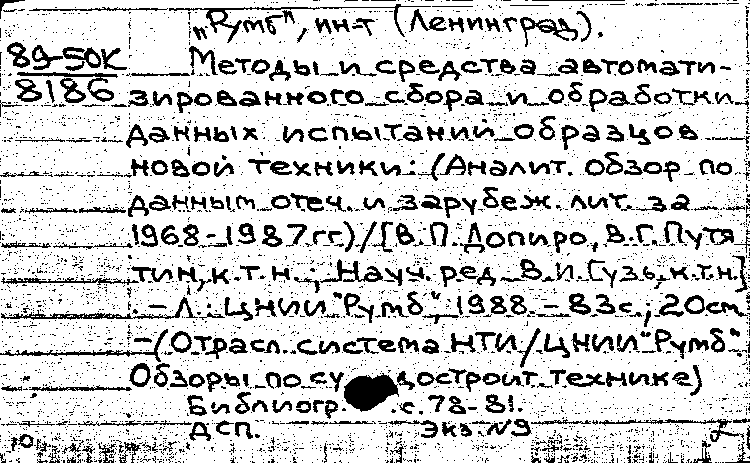 „Румб", ин-т (Ленинград).
89-50К
8186
Методы и средства автомати-
зированного сбора и обработки
данных испытаний образцов
новой техники: (Аналит. обзор по
данным отеч. и зарубеж. лит. за
1968-1987 гг.)/[В.П. Допиро, В.Г. Путя
тин, к.т.н.; Науч. ред. В.И. Гузь, к.т.н.]
. – Л.: ЦНИИ "Румб", 1988. – 83 с.; 20 см
– (Отрасл. система НТИ/ЦНИИ "Румб"
Обзоры по су достроит. технике)
Библиогр. с. 78-81.
ДСП. Экз. № 9